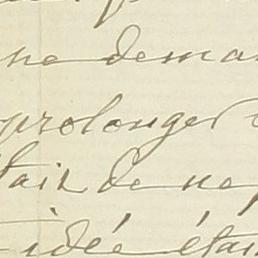 ne deman
prolonger
tait de ne p
idée étai